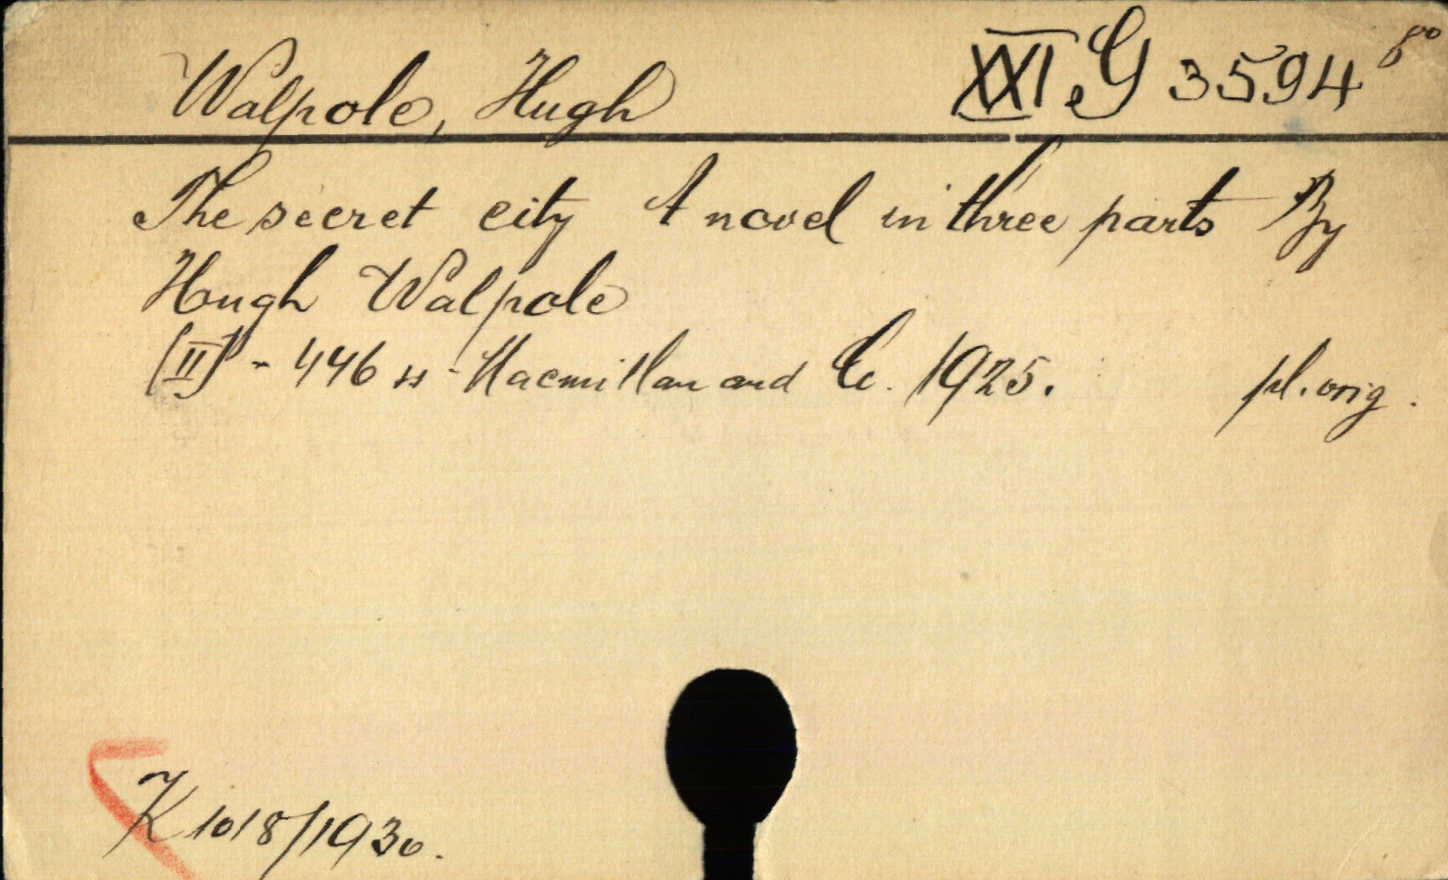 Walpole, Hugh XXI.G 3594 8°
The secret city A novel in three parts By
Hough Walpole
[II] - 446 ss - Macmillan and Co. 1925. pl. orig.
K 1018/1930.